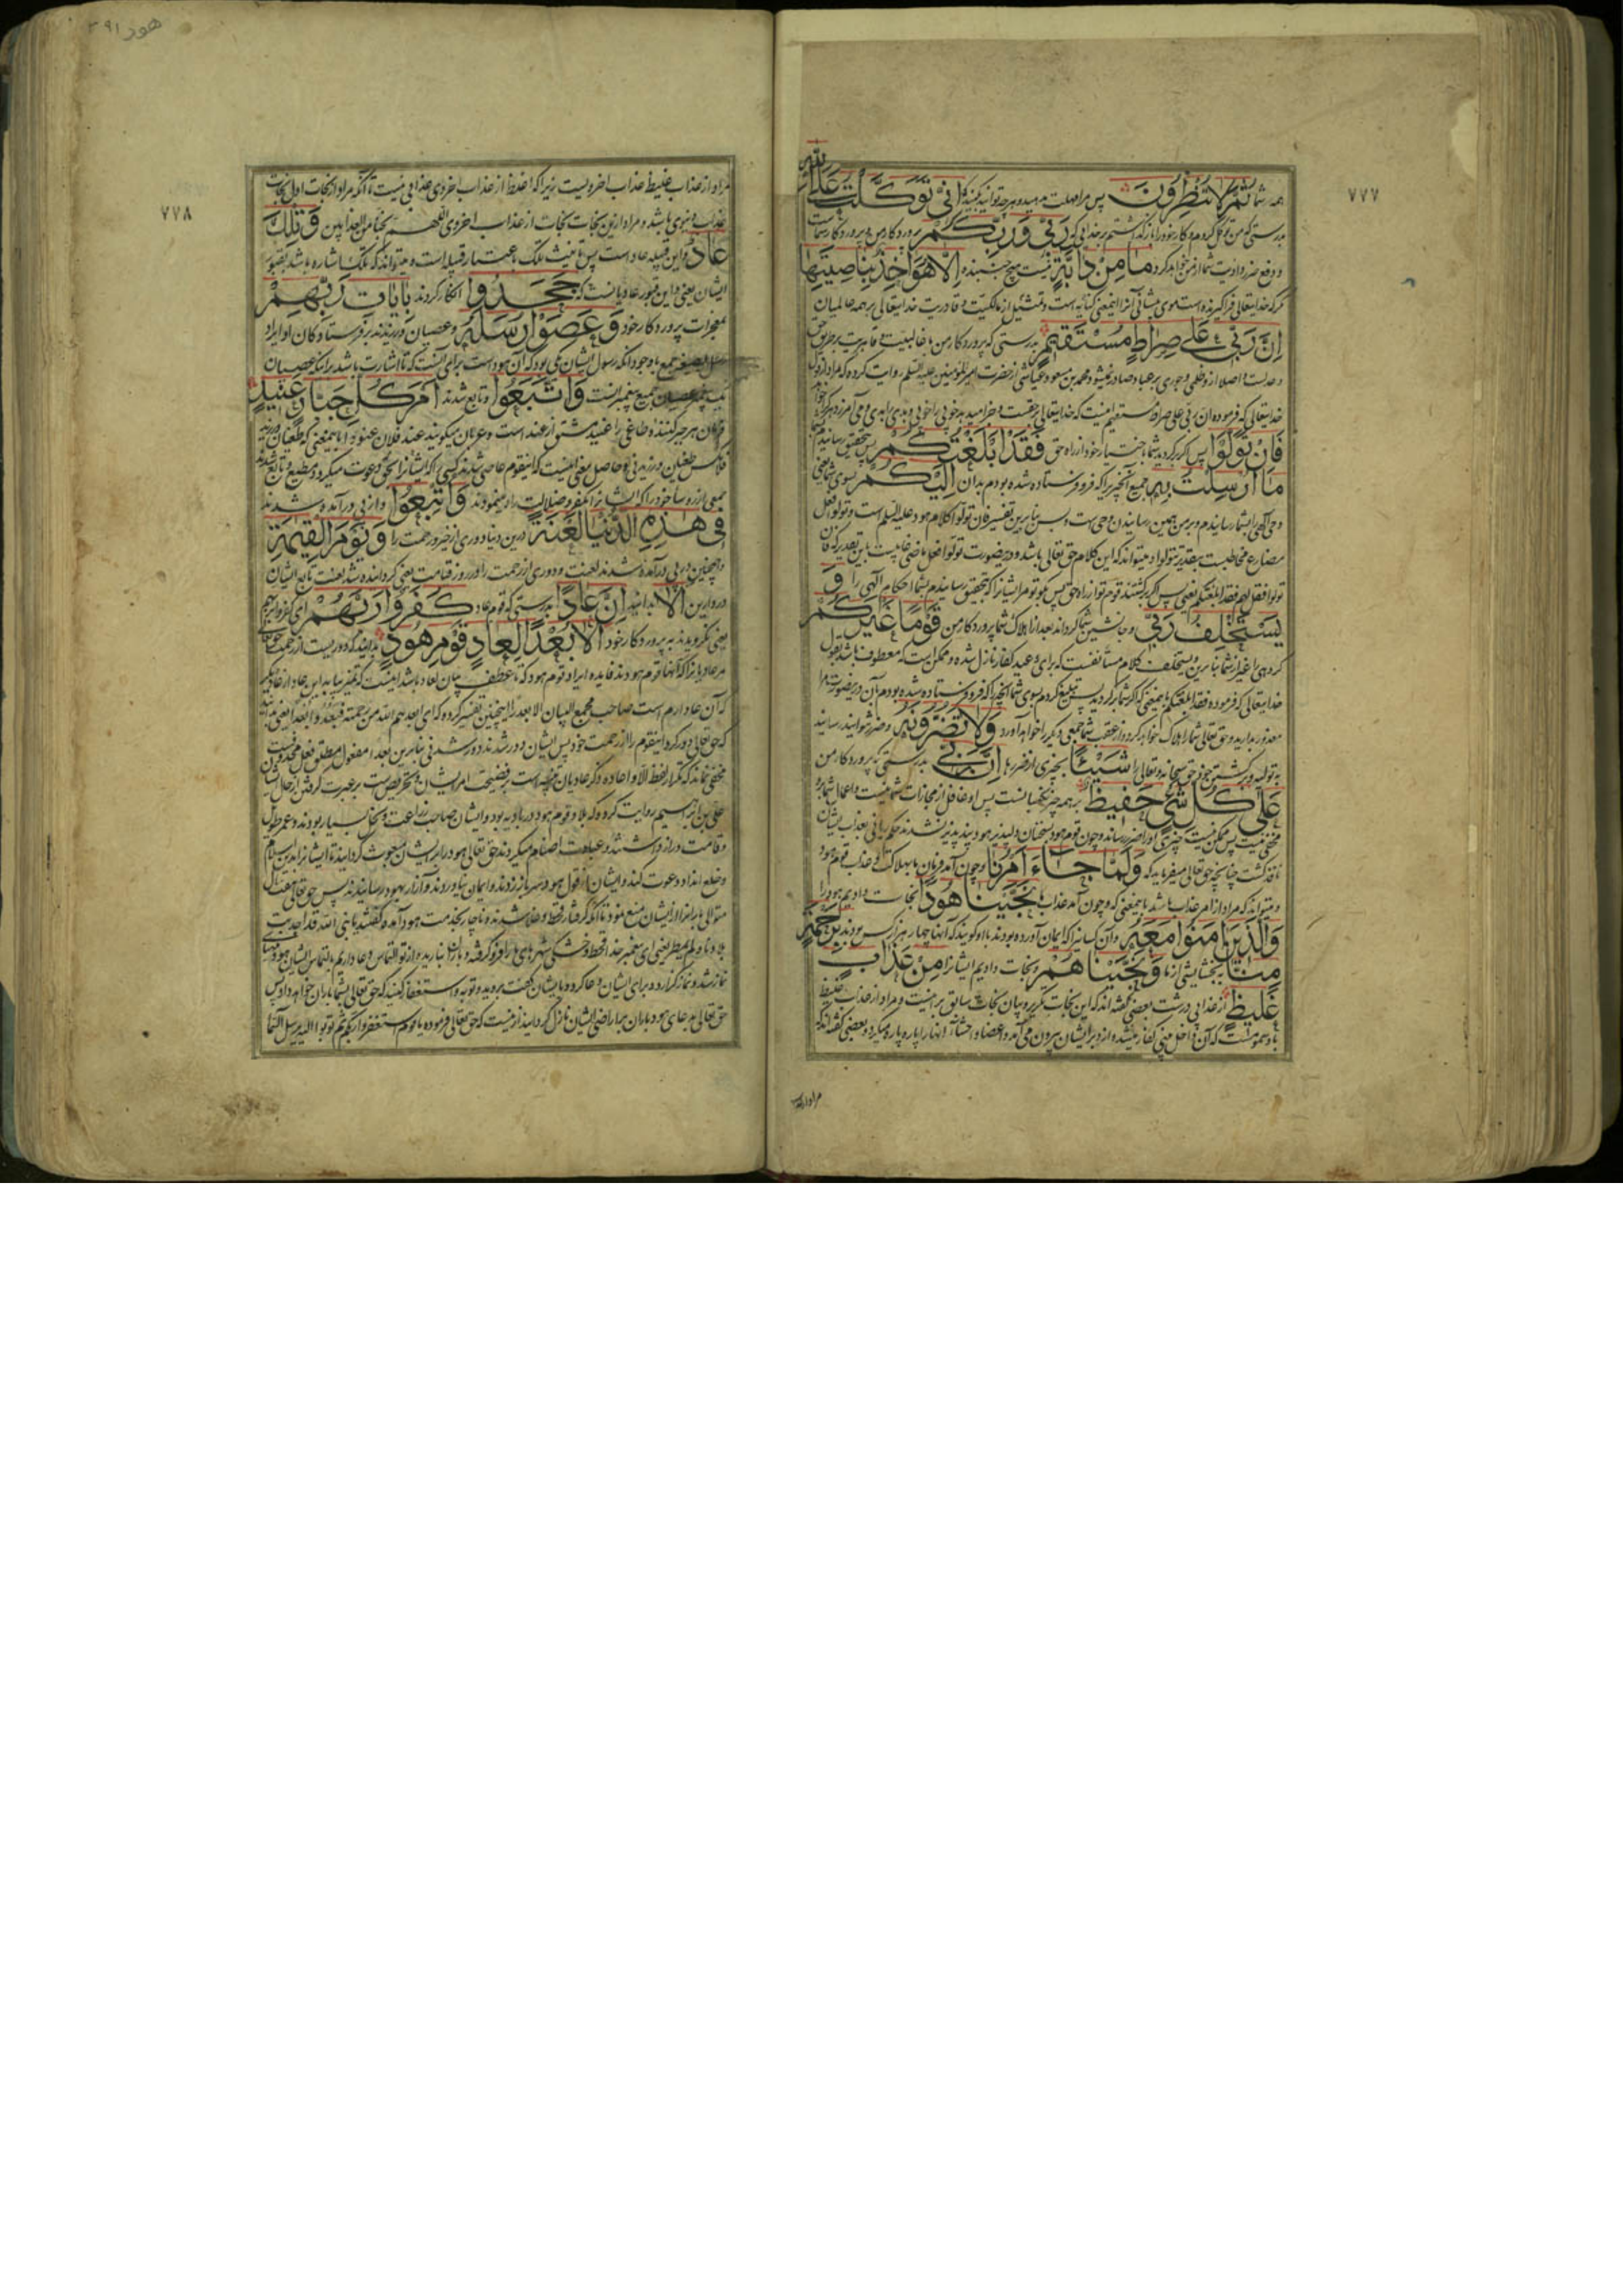 ۷۷۷
همه شما ثُمَّ لَا تُنْظِرُونِ پس مرا مهلت مدهید و هرچه توانید بکنید که اِنِّی تَوَکَّلْتُ عَلَی اللّٰهِ
بدرستی که من توکل کردم و کار خود را باز گذاشتم بر خدایی که رَبِّی وَرَبِّکُمْ پروردکار من و پروردکار شماست
و دفع ضرر و اذیت شما از من خواهد کرد مَا مِنْ دَابَّةٍ نیست هیچ جنبنده اِلَّا هُوَ اٰخِذٌ بِنَاصِیَتِهَا
مکر که خدایتعالی فراکیرنده است موی پیشانی آنرا اینمعنی کنایه است و تمثیل از مالکیت و قادریت خدایتعالی بر همه عالمیان
اِنَّ رَبِّی عَلٰی صِرَاطٍ مُسْتَقِیمٍ بدرستی که پروردکار من با غالبیت و قاهریت بر طریق حق
و عدلست و اصلا از و ظلمی و جوری بر عباد صادر نمیشود و محمد بن مسعود عیاشی از حضرت امیرالمؤمنین علیه السلم روایت کرده که مراد از قول
خدایتعالی که فرموده ان ربی علی صراط مستقیم اینست که خدایتعالی بر حقست و جزا میدهد خوبی را بخوبی و بدی را ببدی و می آمرزد هرکرا خواهد
فَاِنْ تَوَلَّوْا پس اکر برکردید شما باختیار خود از راه حق فَقَدْ اَبْلَغْتُکُمْ پس بتحقیق رسانیدم بشما
مَا اُرْسِلْتُ بِهِ جمیع آنچیزیرا که فرو فرستاده شده بودم بدان اِلَیْکُمْ بسوی شما یعنی
وحی الهی را بشما رسانیدم و بر من همین رسانیدن وحی است و بس بنابرین تفسیر فان تولوا کلام هود علیه السلم است و تولوا فعل
مضارع مخاطبست بتقدیر تتولوا و میتواند که این کلام حق تعالی باشد و درینصورت تولوا فعل ماضی غایبست باین تقدیر که فان
تولوا فقل لهم فقد ابلغتکم یعنی پس اکر برکشتند قوم تو از راه حق پس بکو تو مر ایشانرا که بتحقیق رسانیدم بشما احکام الهی را وَ
یَسْتَخْلِفُ رَبِّی و جانشین شما کرداند بعد از اهلاک شما پروردکار من قَوْمًا غَیْرَکُمْ
کروهی را غیر از شما بنابرین و یستخلف کلام مستأنفست که برای وعید کفار نازل شده و ممکن است که معطوف باشد بقول
خدایتعالی که فرموده فقد ابلغتکم باینمعنی که اکر شما برکردید پس تبلیغ کردم بسوی شما آنچه را که فرو فرستاده شده بودم بآن درینصورت مرا
معذور بدارید و حق تعالی شما را هلاک خواهد کرد و از عقب شما جمعی دیکر را خواهد آورد وَلَا تَضُرُّونَهُ و ضرر نتوانید رسانید
به تولیه و برکشتن خود حق سبحانه و تعالی را شَیْئًا بچیزی از ضررها اِنَّ رَبِّی بدرستی که پروردکار من
عَلٰی کُلِّ شَیْءٍ حَفِیظٌ بر همه چیز نکهبانست پس او غافل از مجازات شما نیست و اعمال شما بر و
مخفی نیست پس ممکن نیست چیزی او را ضرر رساند و چون قوم هود بسخنان دلپذیر هود پند پذیر نشدند حکم ربانی بعذاب ایشان
نافذ کشت چنانچه حق تعالی میفرماید که وَلَمَّا جَاءَ اَمْرُنَا و چون آمد فرمان ما بهلاکت و عذاب قوم هود
و میتواند که مراد از امر عذاب باشد باینمعنی که و چون آمد عذاب ما نَجَّیْنَا هُودًا نجات دادیم هود را
وَالَّذِینَ اٰمَنُوا مَعَهُ و آن کسانیرا که ایمان آورده بودند با او کویند که آنها چهار هزار کس بودند بِرَحْمَةٍ
مِنَّا ببخشایشی از ما وَنَجَّیْنَاهُمْ و نجات دادیم ایشانرا مِنْ عَذَابٍ
غَلِیظٍ از عذابی درشت بعضی کفته اند که این نجات تکریر و بیان نجات سابق بر اینست و مراد از عذاب غلیظ
باد سمومست که آن داخل بینی کفار میشد و از دبر ایشان بیرون می آمد و اعضا و احشاء آنها را پاره پاره میکرد و بعضی کفته اند که
مراد از
هود
۷۷۸
مراد از عذاب غلیظ عذاب اخرویست زیرا که اغلظ از عذاب اخروی عذابی نیست تا آنکه مراد از نجات اول نجات
عذاب دنیوی باشد و مراد ازین نجات نجات از عذاب اخروی اللهم نجنا من العذابین وَتِلْکَ
عَادٌ و این قبیله عاد است پس تأنیث تلک باعتبار قبیله است و میتواند که تلک اشاره باشد بقبور
ایشان یعنی و این قبور عادیانست که جَحَدُوا انکار کردند بِاٰیَاتِ رَبِّهِمْ
بمعجزات پروردکار خود وَعَصَوْا رُسُلَهُ و عصیان ورزیدند بر فرستادکان او ایراد
رسل بصیغه جمع باوجود آنکه رسول ایشان همین بود که آن هود است برای آنست که تا اشارت باشد بر اینکه عصیان
یک پیغمبر عصیان جمیع پیغمبرانست وَاتَّبَعُوا و تابع شدند اَمْرَ کُلِّ جَبَّارٍ عَنِیدٍ
فرمان هر جبر کننده طاغی را عنید مشتق از عند است و عربان میکویند عند فلان عنودا باینمعنی که طغیان ورزید
فلانکس طغیان ورزیدنی و حاصل معنی اینست که اینقوم عاصی شدند کسی را که ایشانرا بحق دعوت میکرد و مطیع و تابع شدند
جمعی از رؤسای خود را که ایشانرا بکفر و ضلالت راه مینمودند وَاُتْبِعُوا و از پی در آمده شدند
فِی هٰذِهِ الدُّنْیَا لَعْنَةً درین دنیا دوری از خیر و رحمت را وَیَوْمَ الْقِیٰمَةِ
و همچنین در پی درآمده شدند لعنت و دوری از رحمت را در روز قیامت یعنی کردانیده شد لعنت تابع ایشان
در دارین اَلَا بدانید اِنَّ عَادًا بدرستی که قوم عاد کَفَرُوا رَبَّهُمْ ای کفروا بربهم
یعنی نکرویدند به پروردکار خود اَلَا بُعْدًا لِعَادٍ قَوْمِ هُودٍ بدانید که دوریست از رحمت حق تعالی
مر عادیانرا که آنها قوم هودند فایده ایراد قوم هود که تا عطف بیان لعاد باشد اینست که تمیز بیابد این عاد از عاد دیکر
که آن عاد ارم است صاحب مجمع البیان الا بعدا را اینچنین تفسیر کرده که ای ابعدهم الله من رحمته فبعدوا بعدا یعنی بدانید
که حق تعالی دور کرد اینقوم را از رحمت خود پس ایشان دور شدند دور شدنی بنابرین بعدا مفعول مطلق فعل محذوفست
مخفی نماند که تکرار لفظ الا و اعاده ذکر عادیان تنبیه است بر فضیحت امر ایشان و تحریض است بر عبرت کرفتن از حال ایشان
علی بن ابراهیم روایت کرده که بلاد قوم هود در بادیه بود و ایشان صاحب زراعت و نخل بسیار بودند و عمر طویل
و قامت دراز داشتند و عبادت اصنام میکردند حق تعالی هود را بر ایشان مبعوث کردانید تا ایشانرا بدین اسلام
و خلع انداد دعوت کند و ایشان از قول هود سر باز زدند و ایمان نیاوردند و آزار بهود رسانیدند پس حق تعالی هفت سال
متوالی باران را از ایشان منع نمود تا آنکه کرفتار قحط و غلا شدند و ناچار بخدمت هود آمده کفتند یا نبی الله قد اجدبت
بلادنا و لم تمطر یعنی ای پیغمبر خدا قحط و خشکی شهرهای ما را فرو کرفته و باران نبارید و از تو التماس دعا داریم بالتماس ایشان هود مهیای
نماز شد و نماز کزارده برای ایشان دعا کرد و بایشان کفت بروید و توبه و استغفار کنید که حق تعالی بشما باران خواهد داد پس
حق تعالی بدعای هود باران بر اراضی ایشان نازل کردانید ازینست که حق تعالی فرموده یا قوم استغفروا ربکم ثم توبوا الیه یرسل السماء